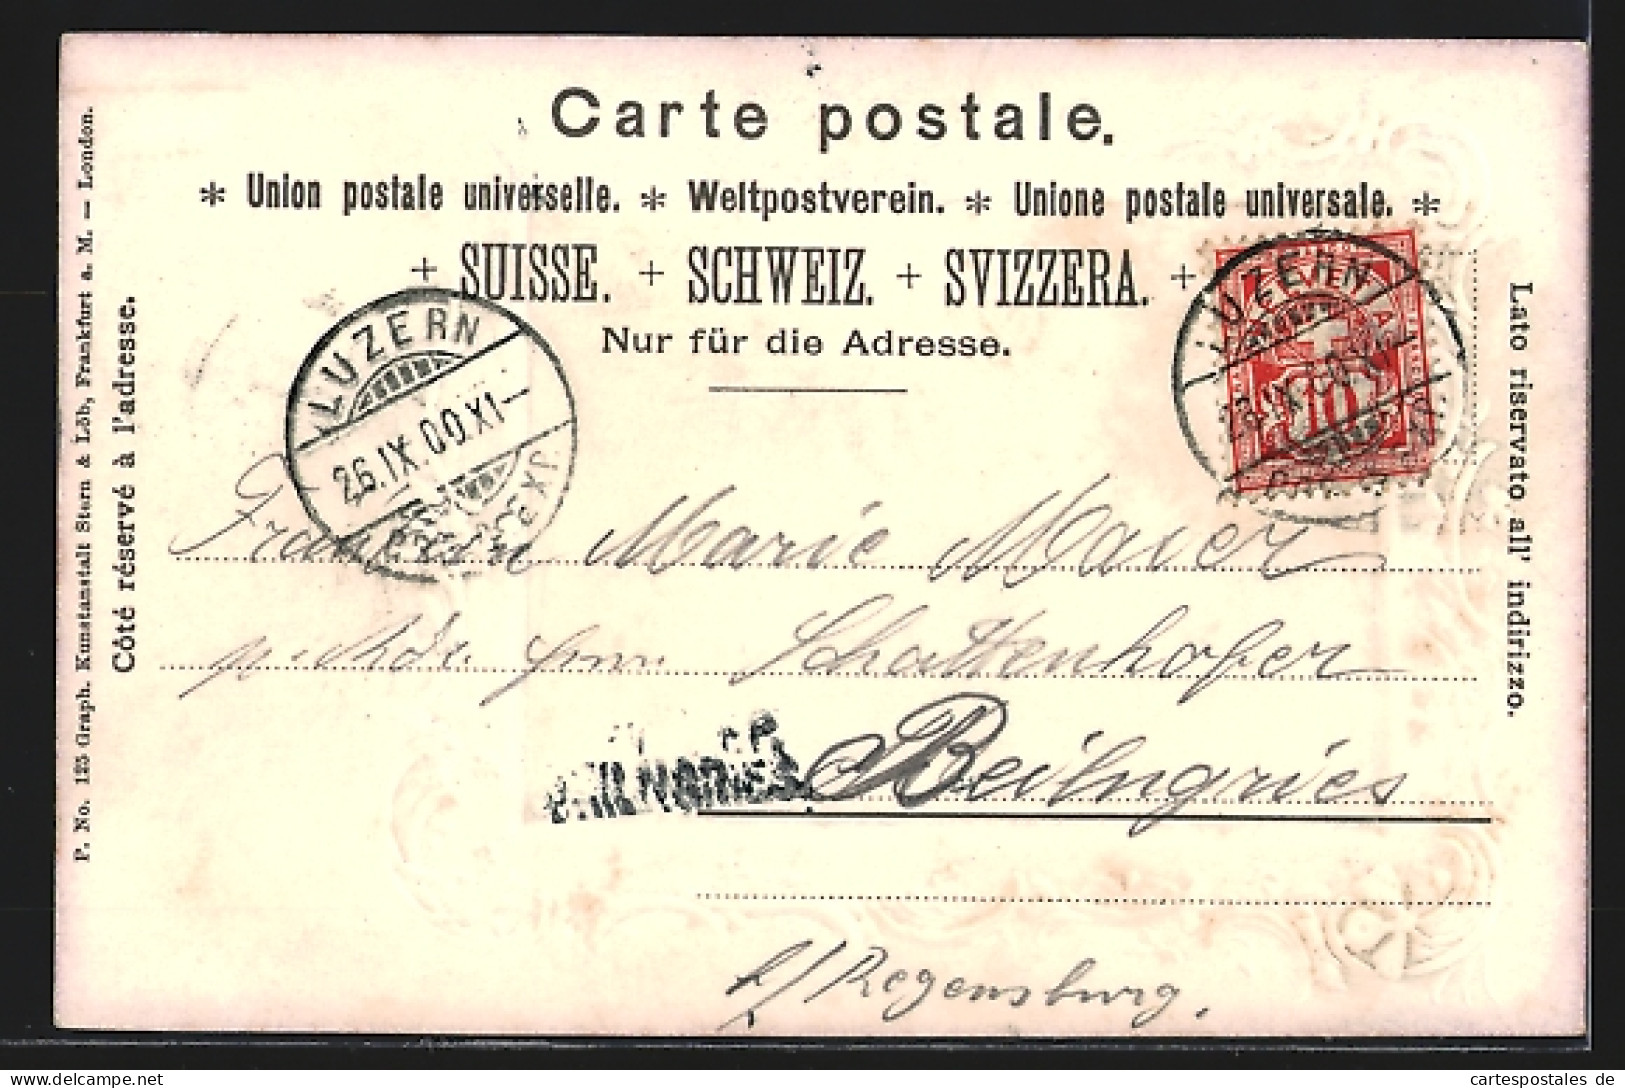 Carte postale.
* Union postale universelle. * Weltpostverein. * Unione postale universale. *
+ SUISSE. + SCHWEIZ. + SVIZZERA. +
Nur für die Adresse.
P. No. 125 Graph. Kunstanstalt Stern & Löb, Frankfurt a. M. — London.
Côté réservé à l'adresse.
Lato riservato all' indirizzo.
LUZERN
26.IX.00.XI–
LUZERN
26.IX.00.XI
10
Marie Maier
Schattenhofer
Beilngries
b/Regensburg.
cartespostales de